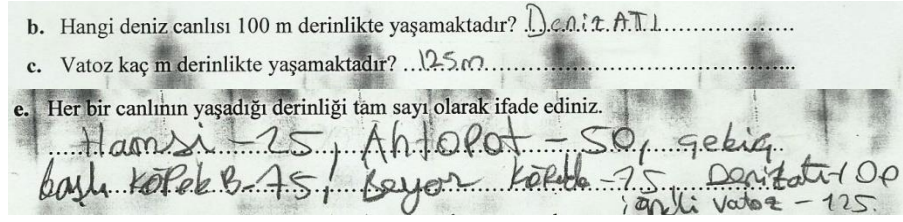 b. Hangi deniz canlısı 100 m derinlikte yaşamaktadır? Deniz ATI
c. Vatoz kaç m derinlikte yaşamaktadır? 125m
e. Her bir canlının yaşadığı derinliği tam sayı olarak ifade ediniz.
Hamsi -25, Ahtopot -50, çekiç
başlı köpek B-75, Beyaz -75 Denizatı-100
iğneli vatoz -125.